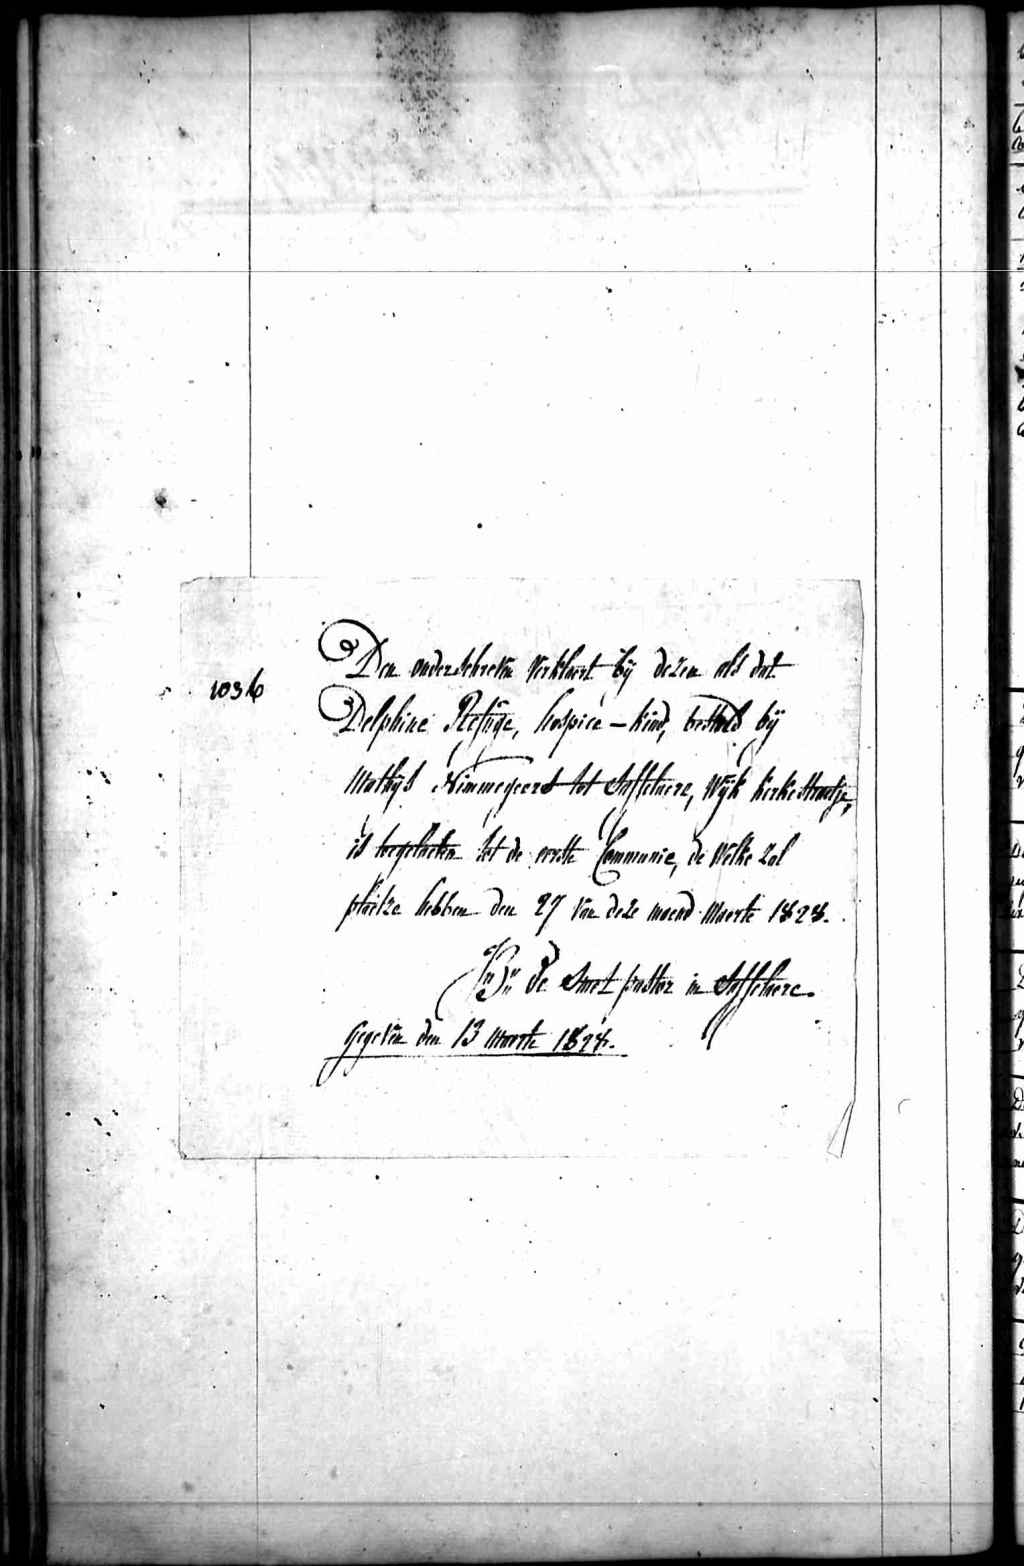 1036
Den onderschreven verklaert bÿ dezen als dat
Delphine Refuge, hospice-kind, besteld bÿ
Mathÿs Nimmegeers tot Saffelaere, wÿk kerkestraetje,
is toegelaeten tot de eerste Communie, de welke zal
plaetze hebben den 27 van deze maend Maerte 1828.
De Smet pastor in Saffelaere.
gegeven den 13 Maerte 1828.